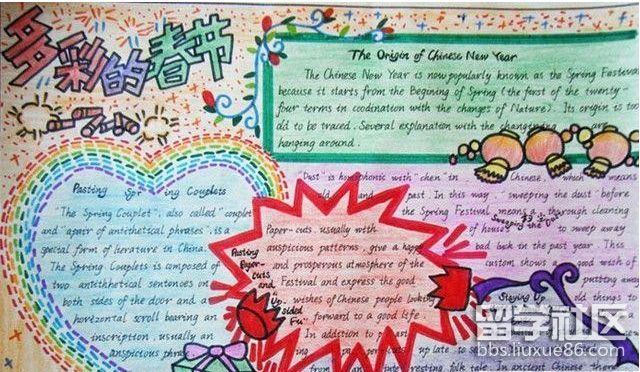 多彩的春节
The Origin of Chinese New Year
The Chinese New Year is now popularly known as the Spring Festival
because it starts from the Begining of Spring (the first of the twenty-
four terms in coodination with the changes of Nature). Its origin is too
old to be traced. Several explanation with the are
hanging around.
Pasting Spr ing Couplets
"The Spring Couplet", also called "couplet"
and "a pair of antithetical phrases", is a
special form of literature in China.
The Spring Couplets is composed of
two antithetical sentences on
both sides of the door and a
horizontal scroll bearing an
inscription, usually an
auspicious phrase.
Pasting
Paper-
cuts
and
"Up-
sided
Fu"
Paper-cuts, usually with
auspicious patterns, give a happy
and prosperous atmosphere of the
Festival and express the good
wishes of Chinese people looking
forward to a good life.
In addition to
"Dust" is homophonic with "chen" in Chinese, which means
old and past. In this way, "sweeping the dust" before
the Spring Festival means a thorough cleaning
of houses to sweep away
bad luck in the past year. This
custom shows a good wish of
putting away
old things
Sweeping the Dust
Staying Up
late to
interesting folk tale. In ancient Chinese there
留学社区
bbs.liuxue86.com